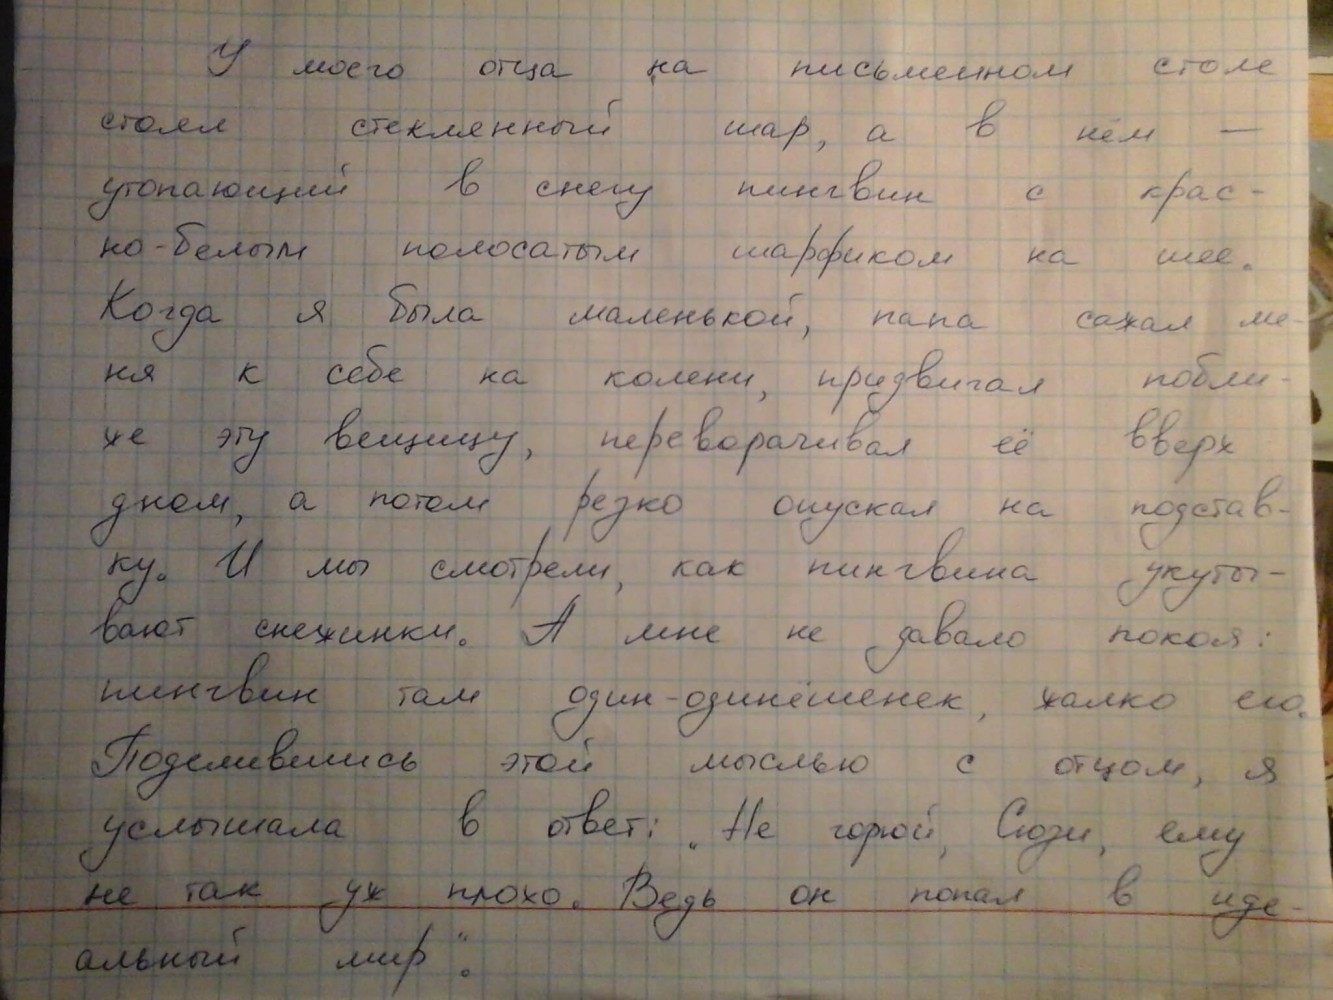 У моего отца на письменном столе
стоял стеклянный шар, а в нём —
утопающий в снегу пингвин с крас-
но-белым полосатым шарфиком на шее.
Когда я была маленькой, папа сажал ме-
ня к себе на колени, придвигал побли-
же эту вещицу, переворачивал её вверх
дном, а потом резко опускал на подстав-
ку. И мы смотрели, как пингвина укуты-
вают снежинки. А мне не давало покоя:
пингвин там один-одинёшенек, жалко его.
Поделившись этой мыслью с отцом, я
услышала в ответ: „Не горюй, Сюзи, ему
не так уж плохо. Ведь он попал в иде-
альный мир“.